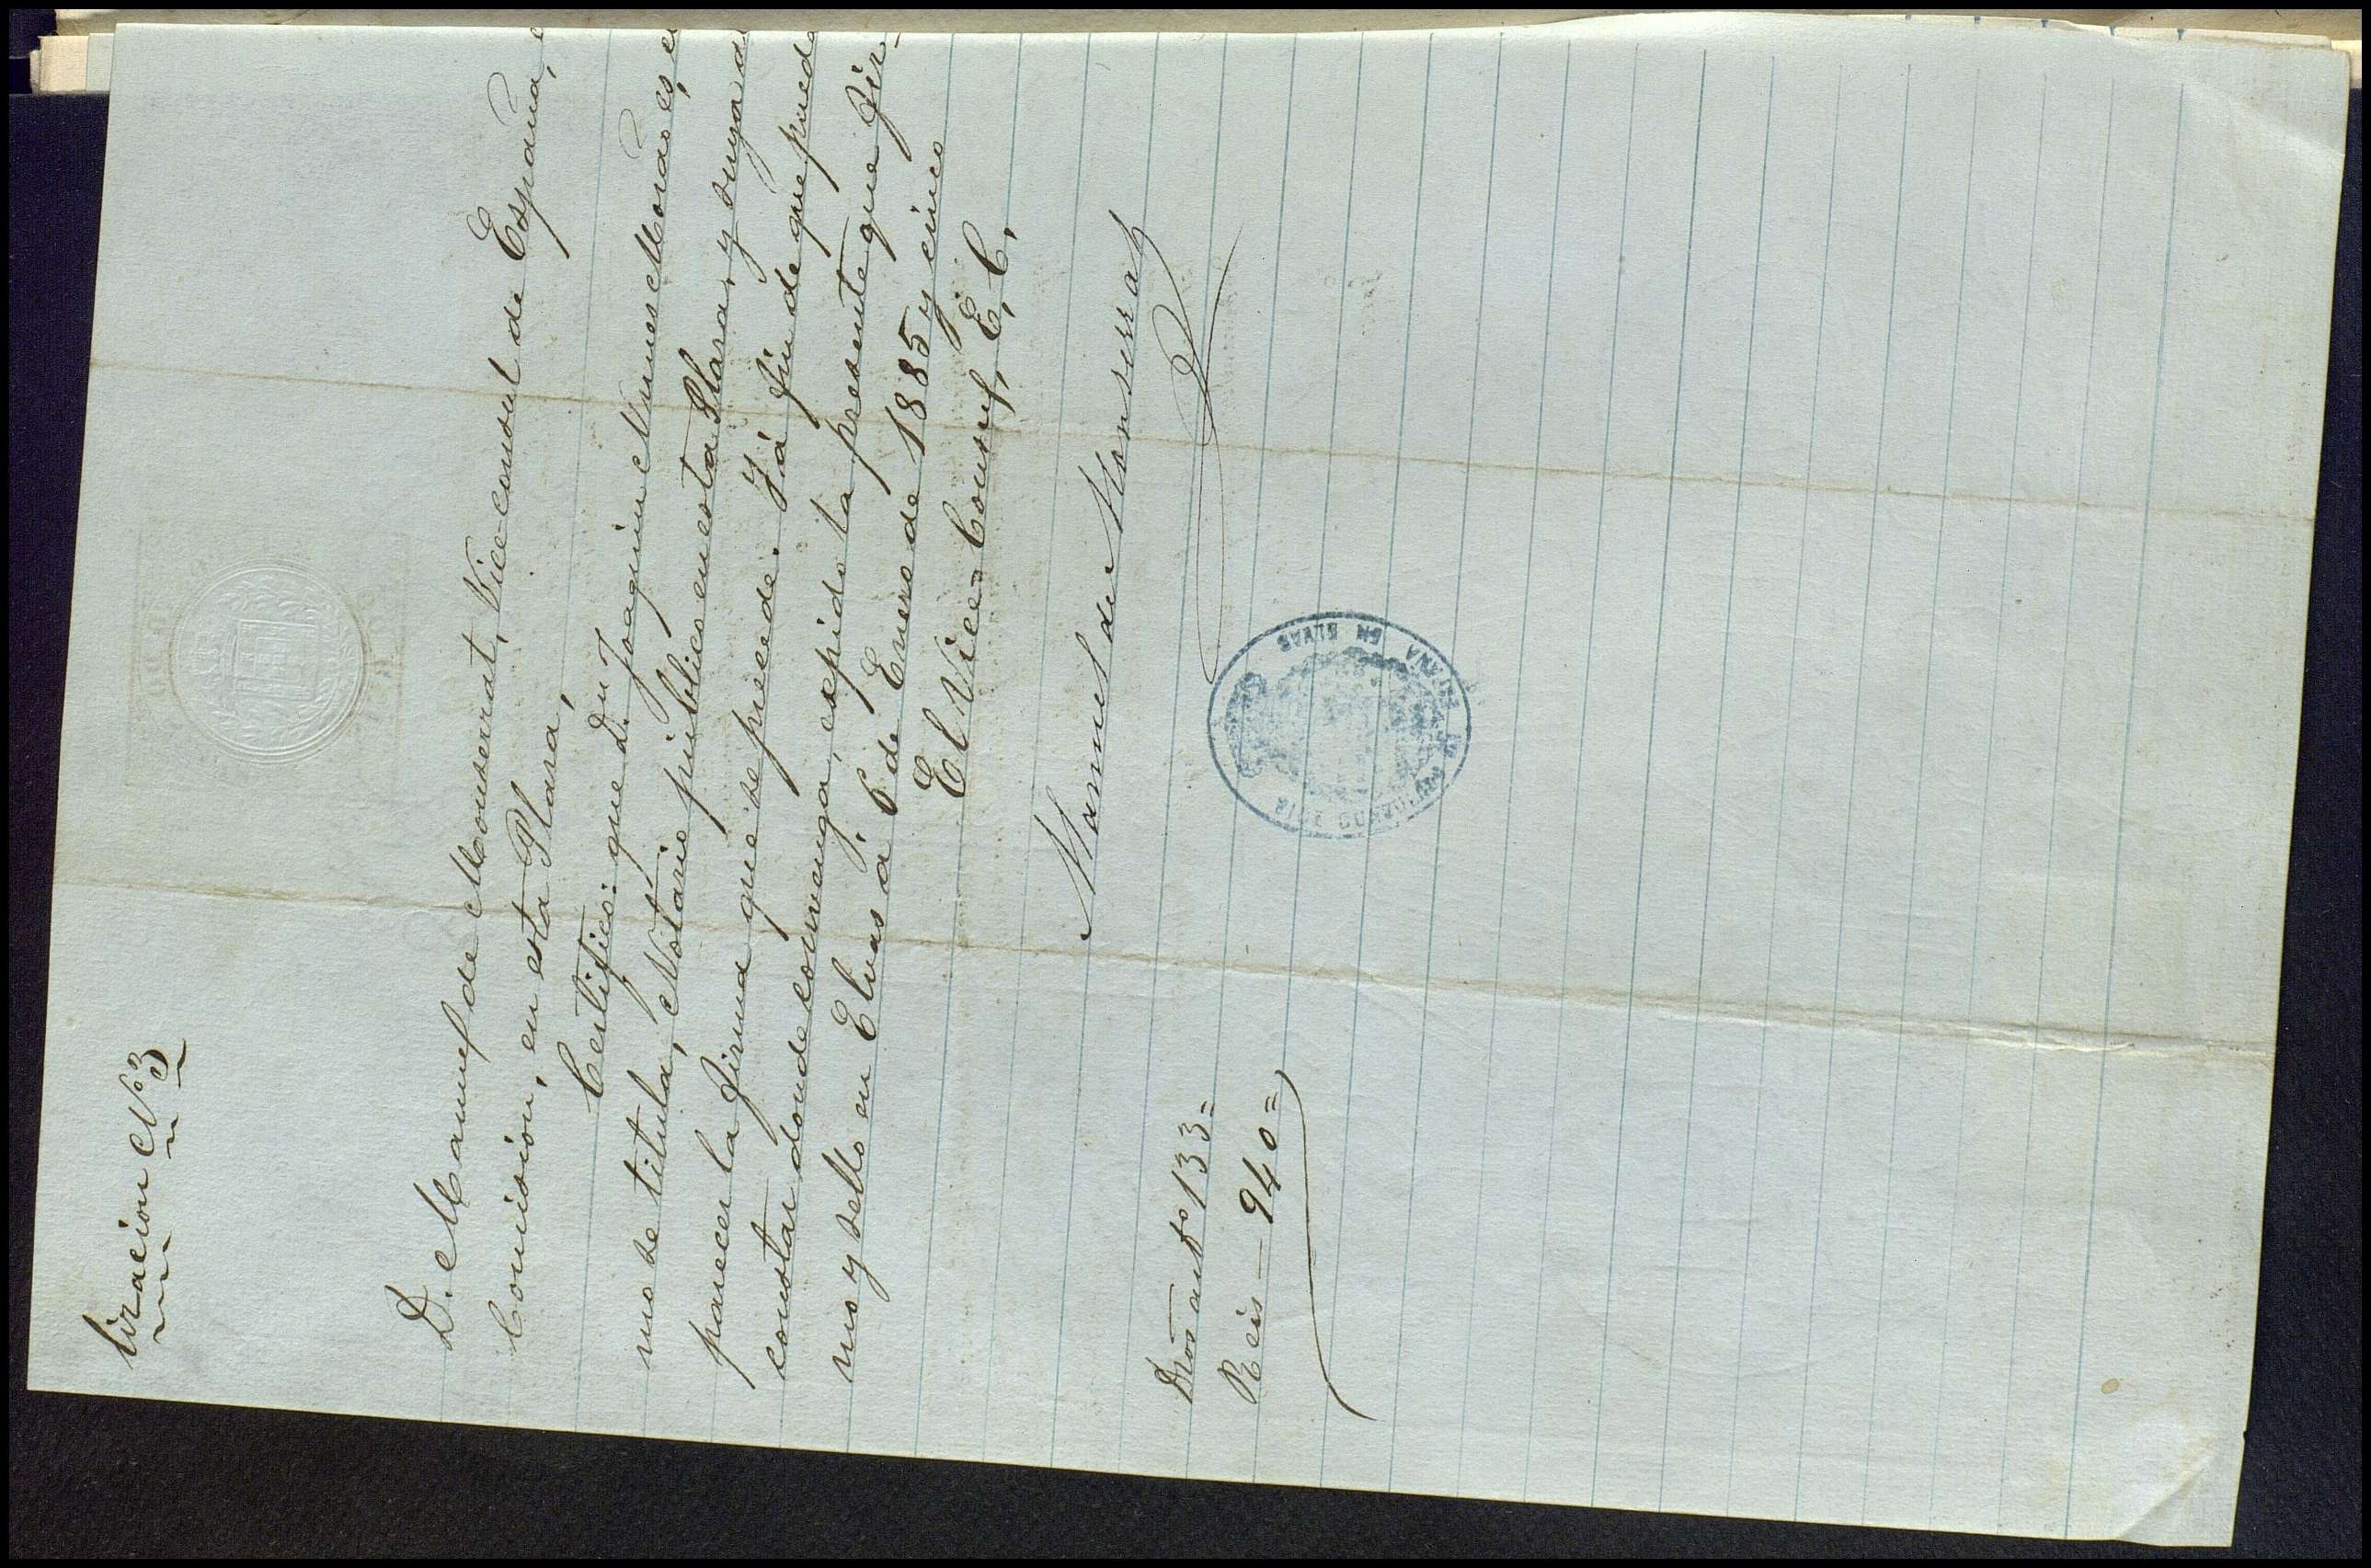 lizacion Nº 3
D. Manuel de Monserrat, Vice-consul de España, e
Comision, en esta Plasa,
Certifico: que Dn. Joaquin Nunes Morao es, e
mo se titula, Notario público en esta Plasa, y suya al
parecer la firma que se precede. Y á fin de que pueda
constar donde convenga, expido la presente que fir-
mo y sello en Elvas á 6 de Enero de 1885 y cinco
El Vice-Consul, E, C,
Manuel de Monserrat
VICE CONSULADO DE ESPAÑA
EN ELVAS
Dros artº 133=
Reis — 940=